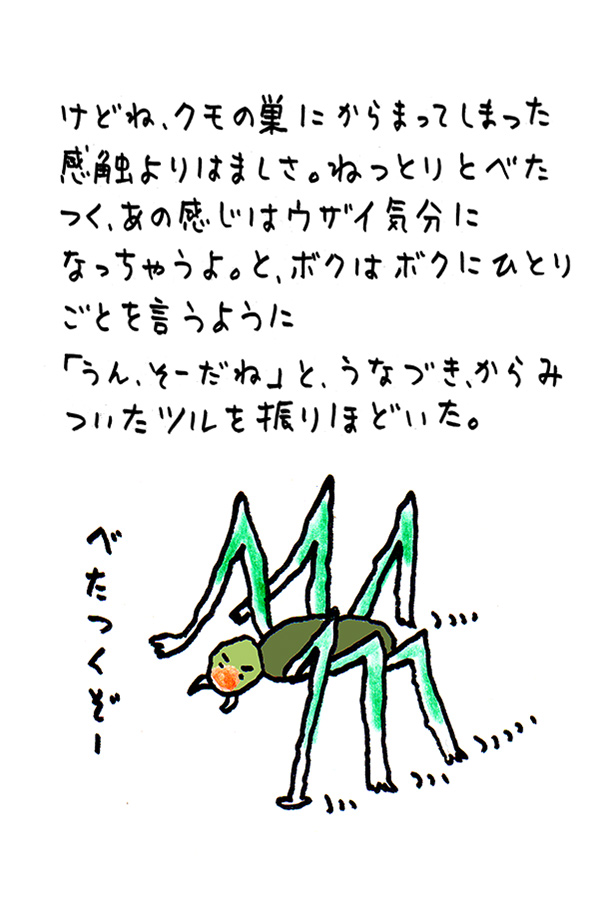 けどね、クモの巣にからまってしまった
感触よりはましさ。ねっとりとべた
つく、あの感じはウザイ気分に
なっちゃうよ。と、ボクはボクにひとり
ごとを言うように
「うん、そーだね」と、うなづき、からみ
ついたツルを振りほどいた。
べたつくぞー